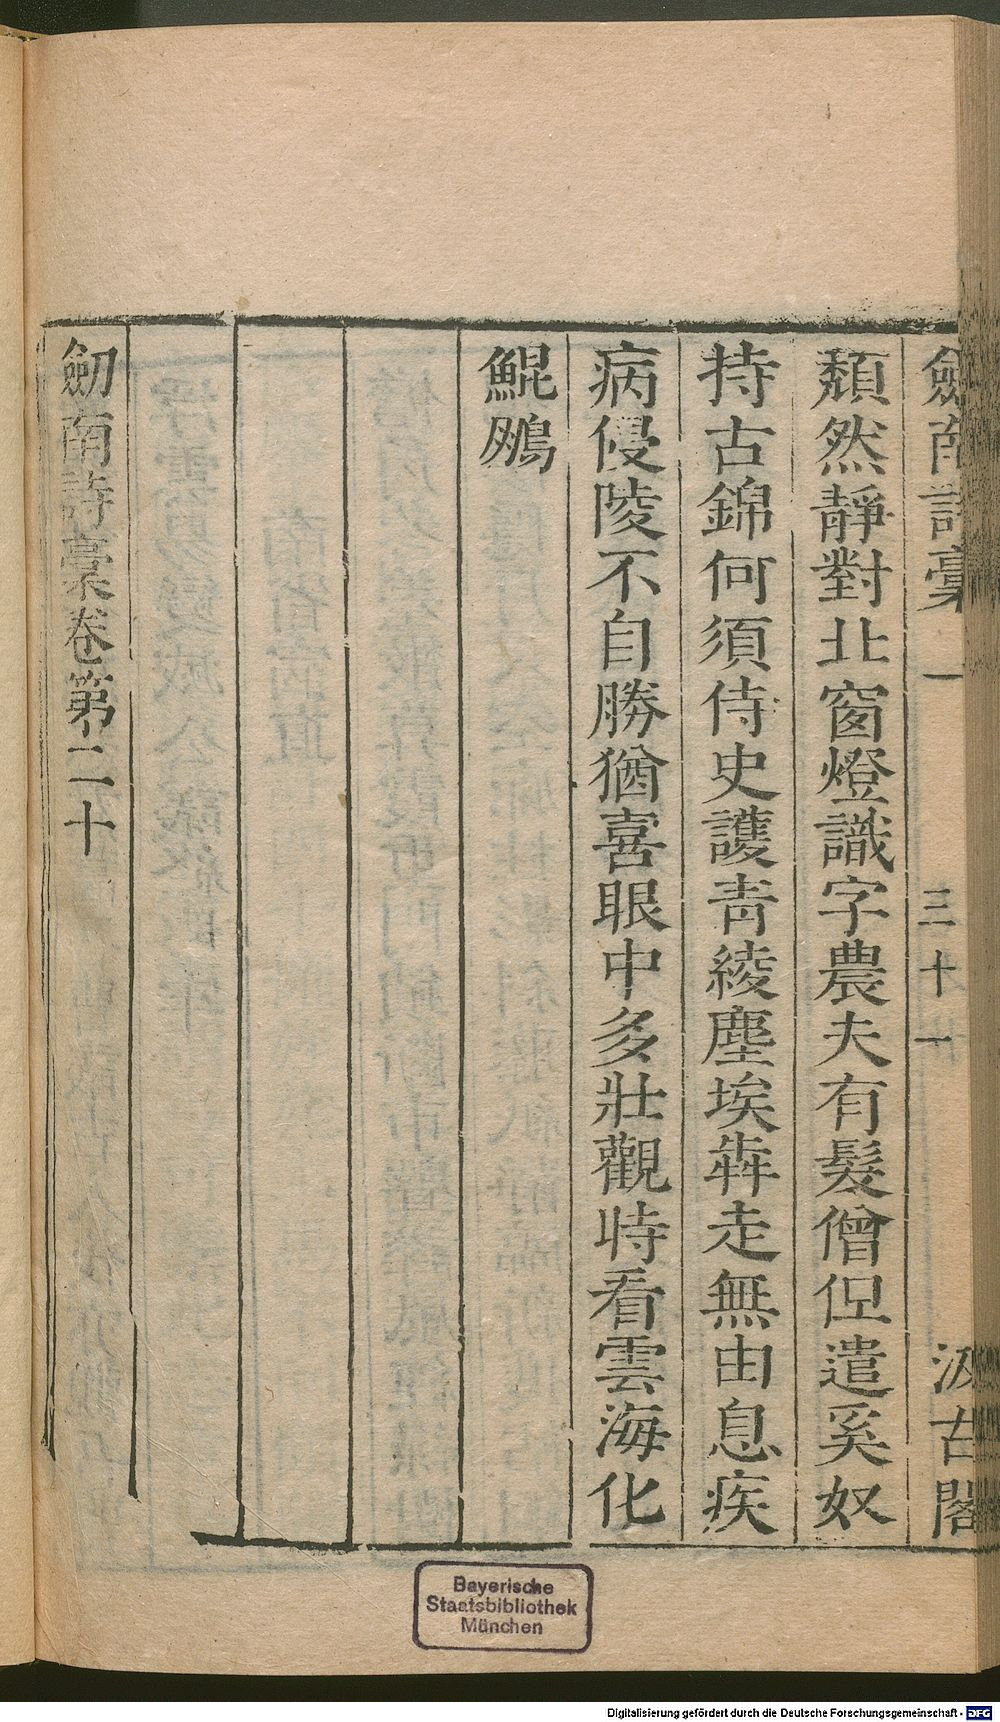 劒南詩稾 一 三十一 汲古閣
頹然靜對北窗燈識字農夫有髮僧但遣奚奴
持古錦何須侍史護青綾塵埃犇走無由息疾
病侵陵不自勝猶喜眼中多壯觀時看雲海化
鯤鵬
劒南詩稾卷第二十
Bayerische
Staatsbibliothek
München
Digitalisierung gefördert durch die Deutsche Forschungsgemeinschaft - DFG